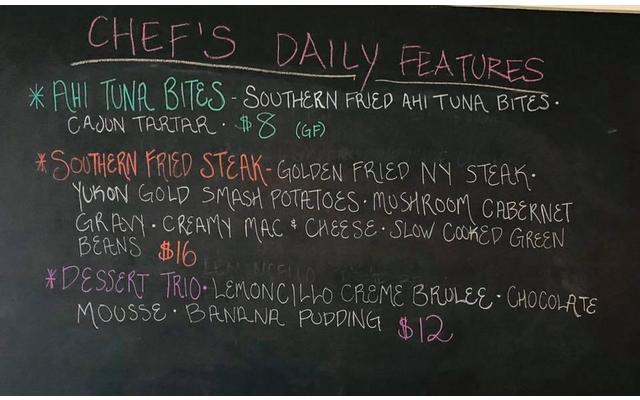 CHEF'S DAILY FEATURES
* AHI TUNA BITES - SOUTHERN FRIED AHI TUNA BITES ·
CAJUN TARTAR · $8 (GF)
* SOUTHERN FRIED STEAK - GOLDEN FRIED NY STEAK ·
YUKON GOLD SMASH POTATOES · MUSHROOM CABERNET
GRAVY · CREAMY MAC & CHEESE · SLOW COOKED GREEN
BEANS $16
* DESSERT TRIO · LEMONCILLO CREME BRULEE · CHOCOLATE
MOUSSE · BANANA PUDDING $12